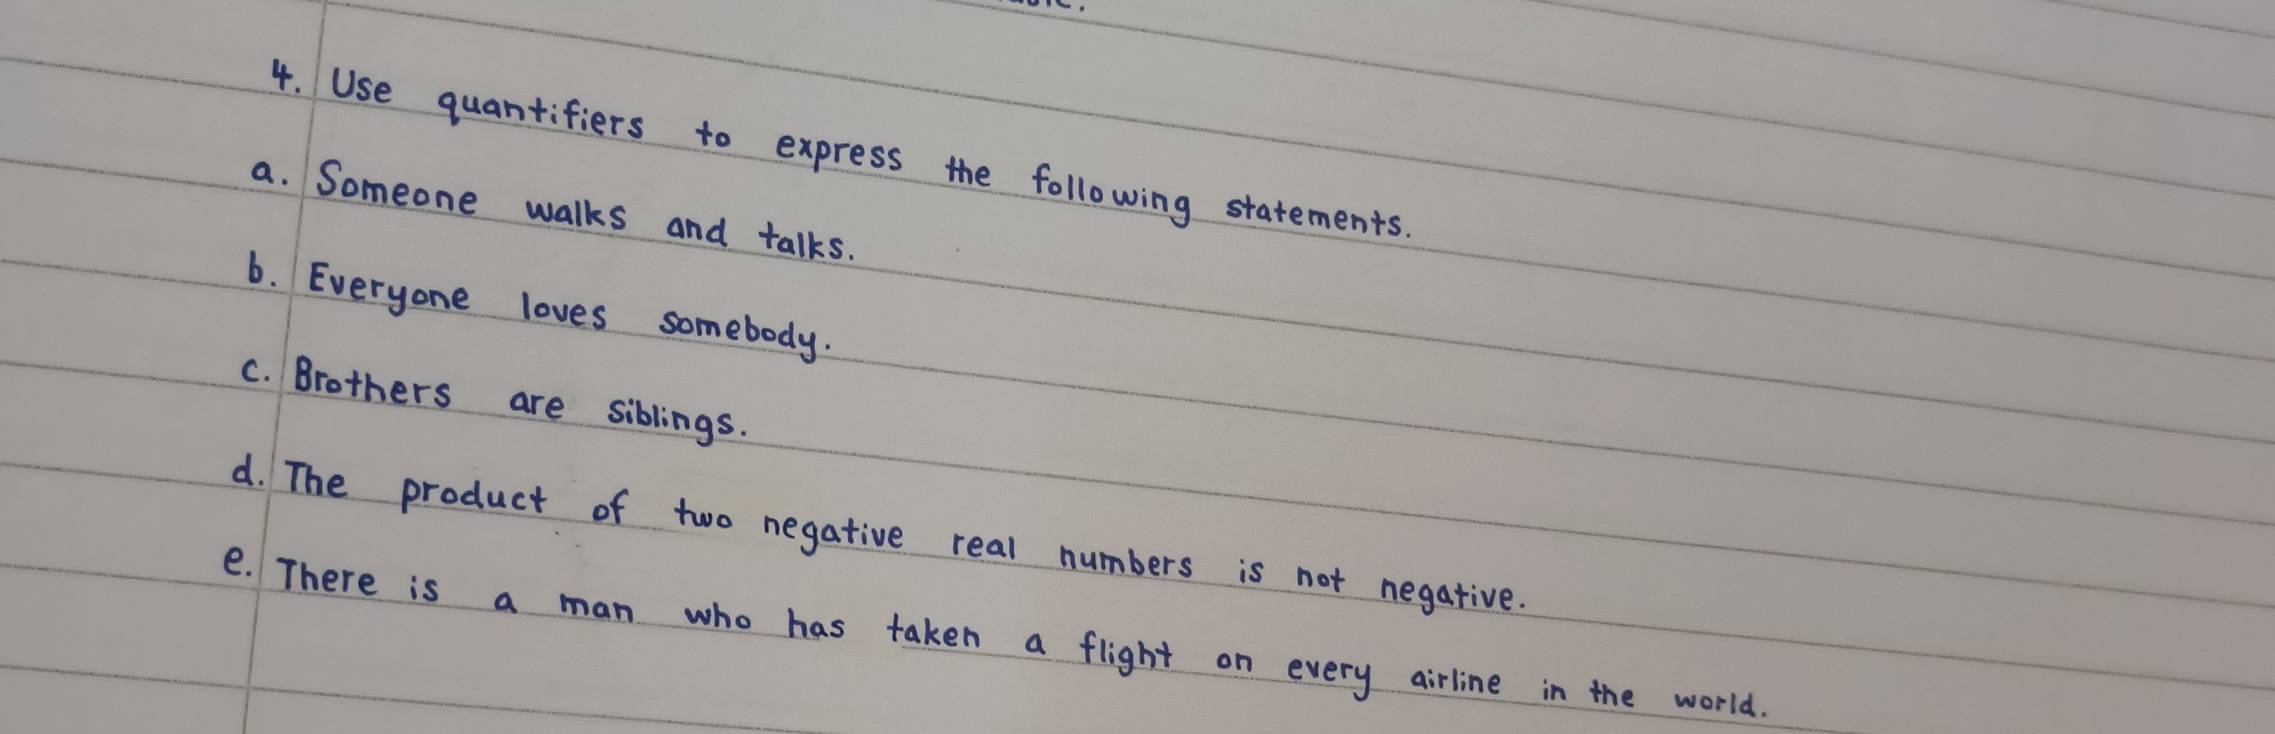 4. Use quantifiers to express the following statements.
a. Someone walks and talks.
b. Everyone loves somebody.
c. Brothers are siblings.
d. The product of two negative real numbers is not negative.
e. There is a man who has taken a flight on every airline in the world.